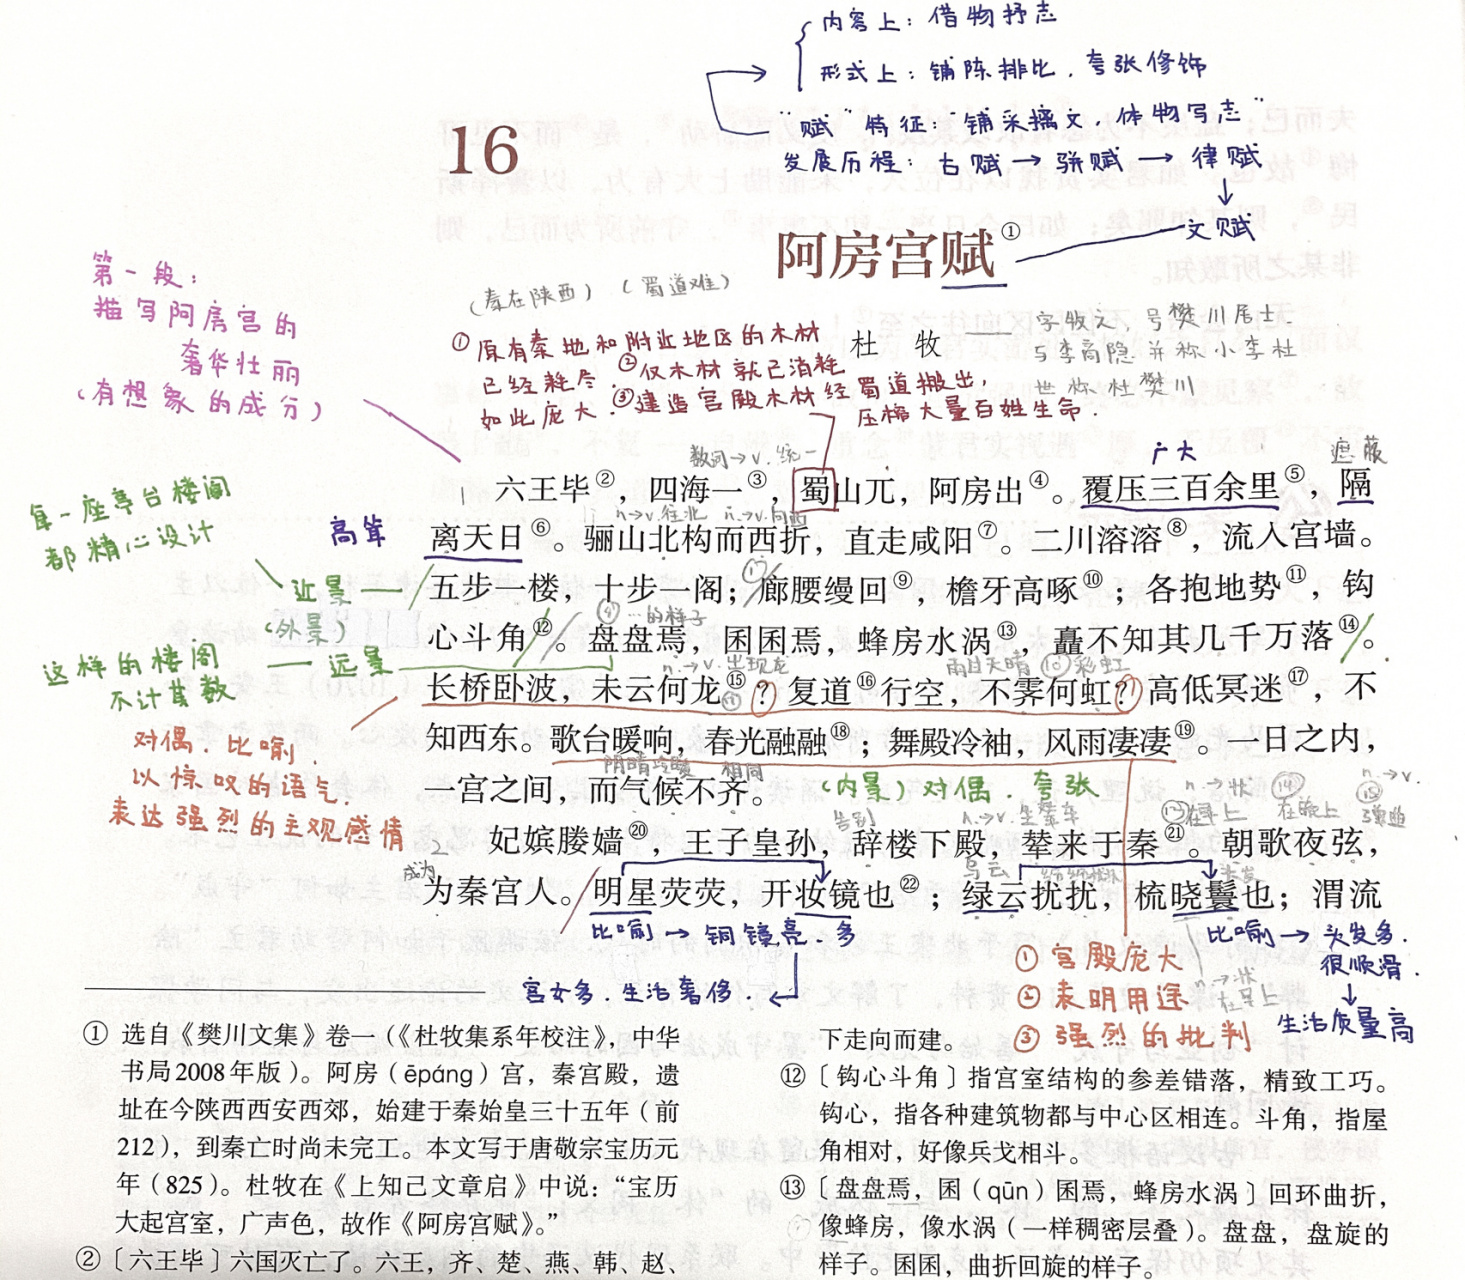 内容上：借物抒志
形式上：铺陈排比．夸张修饰
“赋”特征：“铺采摛文，体物写志”
发展历程：古赋→骈赋→律赋
↓
文赋
16
阿房宫赋①
第一段：
描写阿房宫的
奢华壮丽
（有想象的成分）
（秦在陕西）（蜀道难）
①原有秦地和附近地区的木材
已经耗尽．②仅木材就已消耗
如此庞大．③建造宫殿木材经蜀道搬出
压榨大量百姓生命．
杜 牧
字牧之，号樊川居士．
与李商隐并称小李杜
世称杜樊川
数词→v．统一
广大
遮蔽
六王毕②，四海一③，蜀山兀，阿房出④。覆压三百余里⑤，隔
n→v．往北 n→v．向西
高耸
离天日⑥。骊山北构而西折，直走咸阳⑦。二川溶溶⑧，流入宫墙。
每一座亭台楼阁
都精心设计
近景
（外景）
五步一楼，十步一阁；廊腰缦回⑨，檐牙高啄⑩；各抱地势⑪，钩
…的样子
心斗角⑫。盘盘焉，囷囷焉，蜂房水涡⑬，矗不知其几千万落⑭。
这样的楼阁
不计其数
远景
n．→v．出现龙
雨过天晴 彩虹
长桥卧波，未云何龙⑮？复道⑯行空，不霁何虹？高低冥迷⑰，不
对偶．比喻．
以惊叹的语气．
表达强烈的主观感情
知西东。歌台暖响，春光融融⑱；舞殿冷袖，风雨凄凄⑲。一日之内，
阴晴冷暖 相同
一宫之间，而气候不齐。
（内景）对偶．夸张
告别
n．→v．坐辇车
n→状
在早上
在晚上
n．→v．
弹曲
妃嫔媵嫱⑳，王子皇孙，辞楼下殿，辇来于秦㉑。朝歌夜弦，
成为
乌云
为秦宫人。明星荧荧，开妆镜也㉒；绿云扰扰，梳晓鬟也；渭流
比喻→铜镜亮．多
宫女多．生活奢侈．
比喻→头发多．
很顺滑．
↓
生活质量高
①宫殿庞大
②表明用途
③强烈的批判
n→状
在早上
①选自《樊川文集》卷一（《杜牧集系年校注》，中华
书局2008年版）。阿房（ēpáng）宫，秦宫殿，遗
址在今陕西西安西郊，始建于秦始皇三十五年（前
212），到秦亡时尚未完工。本文写于唐敬宗宝历元
年（825）。杜牧在《上知己文章启》中说：“宝历
大起宫室，广声色，故作《阿房宫赋》。”
②〔六王毕〕六国灭亡了。六王，齐、楚、燕、韩、赵、
下走向而建。
⑫〔钩心斗角〕指宫室结构的参差错落，精致工巧。
钩心，指各种建筑物都与中心区相连。斗角，指屋
角相对，好像兵戈相斗。
⑬〔盘盘焉，囷（qūn）囷焉，蜂房水涡〕回环曲折，
像蜂房，像水涡（一样稠密层叠）。盘盘，盘旋的
样子。囷囷，曲折回旋的样子。